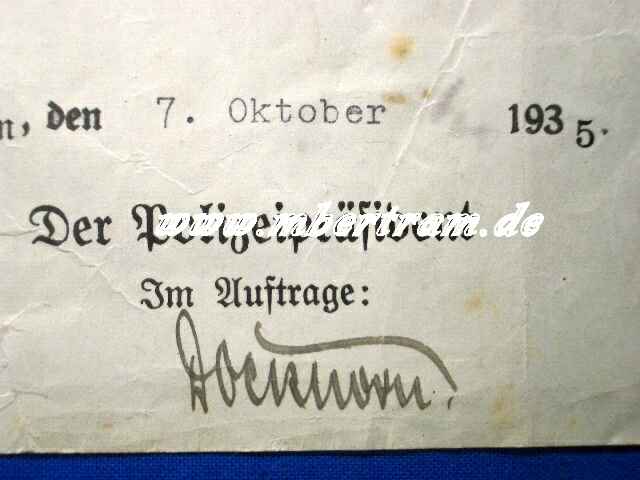 n, den 7. Oktober 1935.
Der Polizeipräsident
www.mbertram.de
Im Auftrage:
Dockhorn.